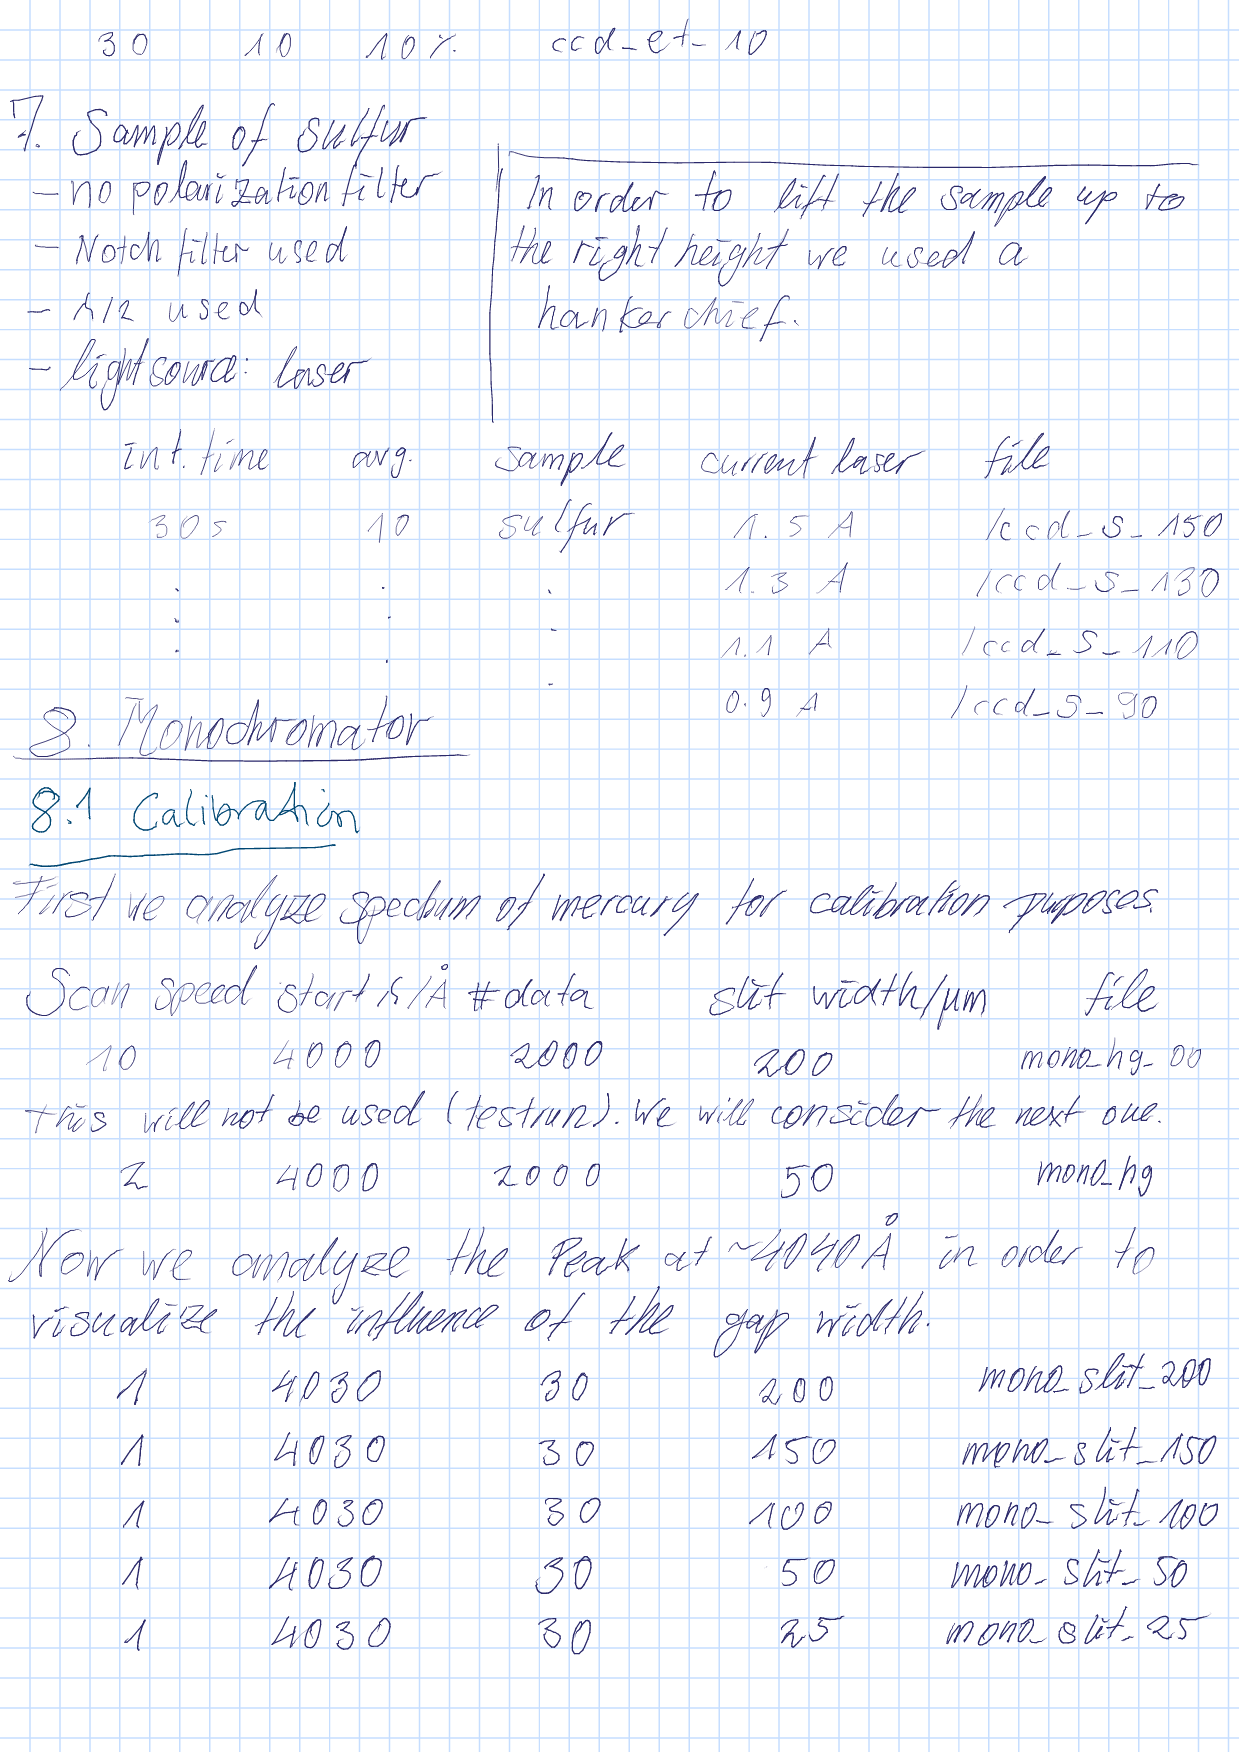 30 10 10% ccd_et_10
7. Sample of sulfur
- no polarization filter
- Notch filter used
- λ/2 used
- lightsource: laser
In order to lift the sample up to
the right height we used a
hankerchief.
int. time avg. sample current laser file
30s 10 sulfur 1.5 A /ccd_S_150
. . . 1.3 A /ccd_S_130
. . . 1.1 A /ccd_S_110
. . . 0.9 A /ccd_S_90
8. Monochromator
8.1 Calibration
First we analyze spectrum of mercury for calibration purposes.
Scan speed start λ/Å #data slit width/μm file
10 4000 2000 200 mono_hg_00
This will not be used (testrun). We will consider the next one.
2 4000 2000 50 mono_hg
Now we analyze the Peak at ~4040Å in order to
visualize the influence of the gap width.
1 4030 30 200 mono_slit_200
1 4030 30 150 mono_slit_150
1 4030 30 100 mono_slit_100
1 4030 30 50 mono_slit_50
1 4030 30 25 mono_slit_25